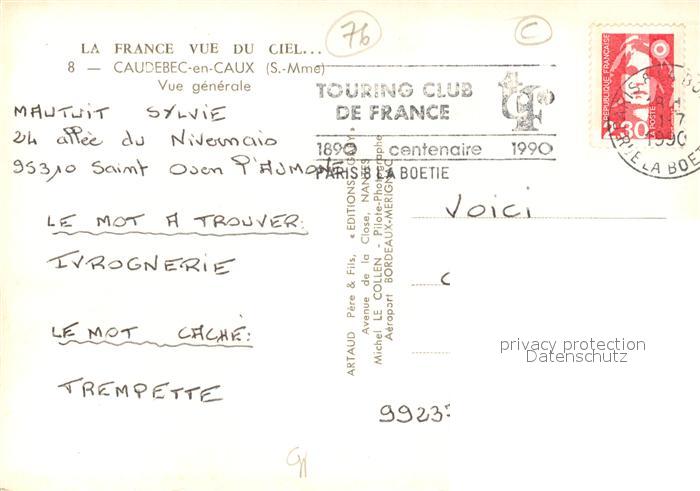 76
C
LA FRANCE VUE DU CIEL...
8 — CAUDEBEC-en-CAUX (S.-Mme)
Vue générale
TOURING CLUB
DE FRANCE
tcf
1890 centenaire 1990
PARIS 8 LA BOETIE
REPUBLIQUE FRANÇAISE
2,30
POSTE
1990
LA BOETIE
MAUTUIT SYLVIE
24 allée du Nivernais
95310 Saint Ouen l'AUMONE
LE MOT A TROUVER:
IVROGNERIE
LE MOT CACHÉ:
TREMPETTE
ARTAUD Père & Fils, « EDITIONS GABY »
Avenue de la Close, NANTES
Michel LE COLLEN - Pilote-Photographe
Aéroport BORDEAUX-MERIGNAC
VOICI
privacy protection
Datenschutz
9923